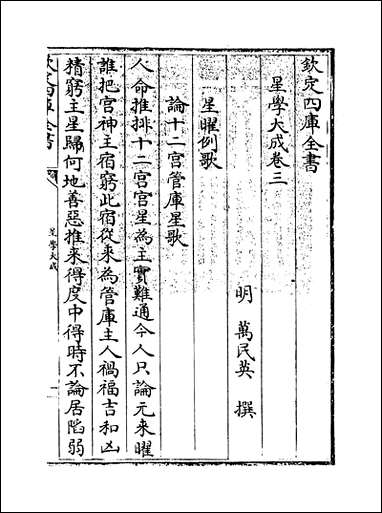 欽定四庫全書
星學大成卷三
明 萬民英 撰
星曜例歌
論十二宮管庫星歌
人命推排十二宮宮星為主實難通今人只論元来曜
誰把宮神主宿窮此宿從来為管庫主人禍福吉和凶
精窮主星歸何地善惡推来得度中得時不論居陷弱
星學大成